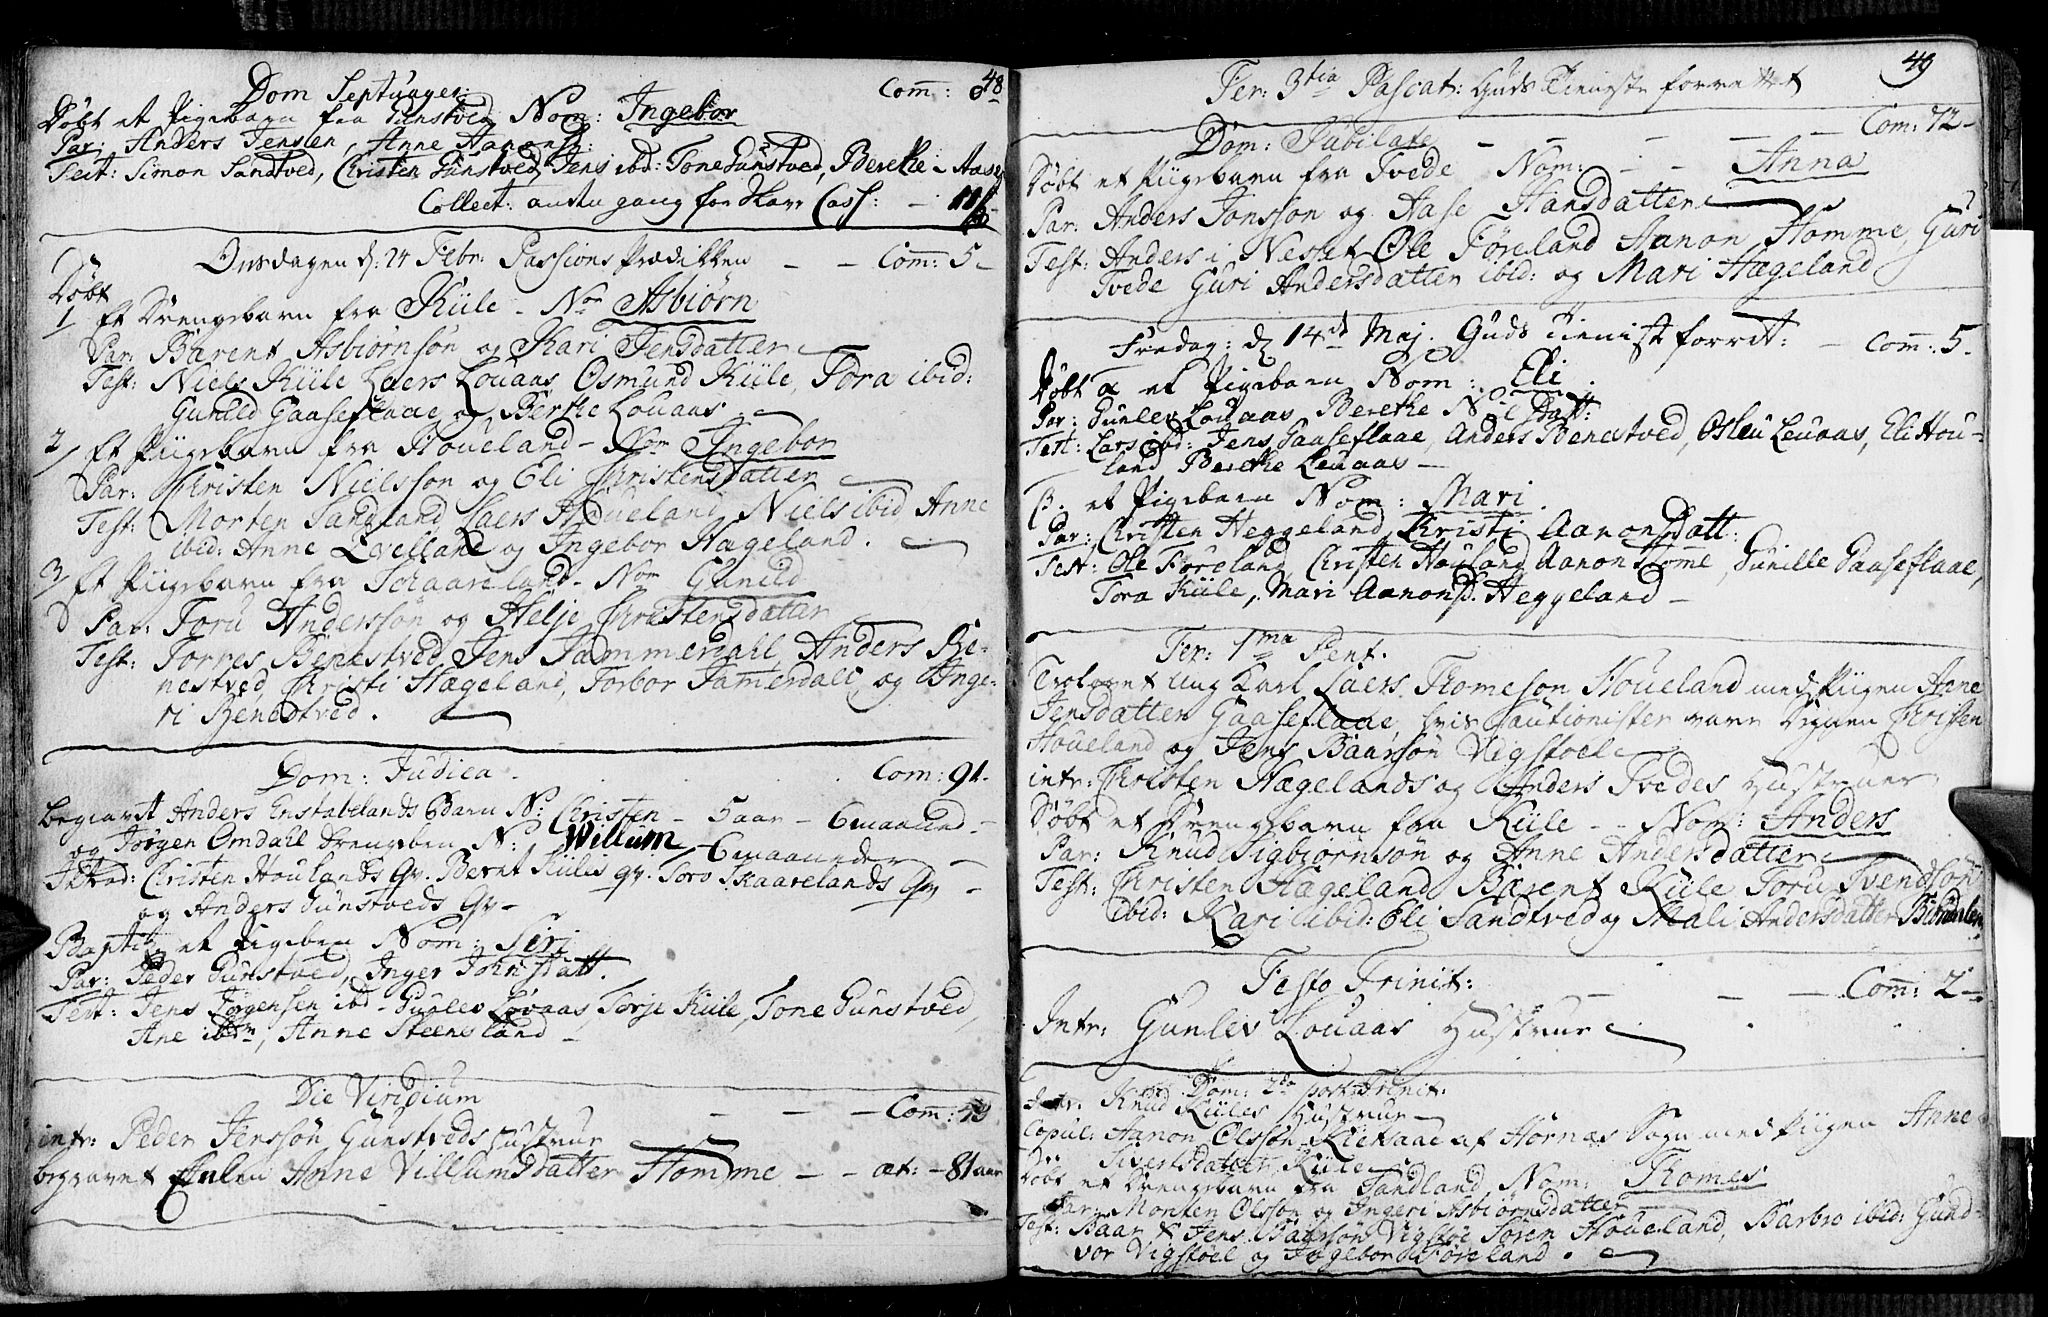 48
Dom Septuages: Com̄: 8
Døbt et Pigebarn fra Gunstved Nom: Ingebor
Par: Anders Jensen, Anne Aanonsd:
Test: Simon Sandtved, Christen Gunstved, Jens ibd: Tone Gunstved, Berethe Aase
Collect: anden gang for Skarr Cass:
Onsdagen d: 24 Febr: Passions Prædikken – – Com̄: 5 –
Døbt
1/ Et Drengebarn fra Kiile – Nom Asbiørn
Par: Barent Asbiørnsøn og Kari Jensdatter
Test: Niels Kiile Laers Louaas, Osmund Kiile, Tora ibid:
Gunild Gaaseflaae og Berthe Louaas
2/ Et Piigebarn fra Houeland – Nom Ingebor
Par: Christen Nielssøn og Eli Christensdatter
Test: Morten Sandland Laers Houeland Niels ibid Anne
ibid: Anne og Ingebor Hageland.
3/ Et Piigebarn fra Schaareland – Nom Gunild
Par: Toru Anderssøn og Helje Christensdatter
Test: Torres Benestved Jens Jammerdahl Anders Be-
nestved Christi Hageland, Torbor Jamerdall og Inge-
ri Benestved.
Dom: Judica. Com: 91.
begravet Anders Enstabelands Barn N: Christen – 5 aar – 6 maaned –
og Jørgen Omdahl Drengeben N: Willum – 6 maaneder –
Introd: Christen Houlands Qv. Bernt Kiiles qv. Toro Skaarelands Qv –
og Anders Gunstveds Qv –
Baptiz. et Pigeben Nom: Siri
Par: Peder Gunstved, Inger Johnsdatt.
Test: Jens Jørgensen ibd – Gunlev Lovaas, Torje Kiile, Tone Gunstved
Ane ibdm, Anne Steensland –
Die Viridium
– – – Com: 49
intr: Peder Jenssøn Gunstveds Hustrue
begravet Enken Anne Villumsdatter Homme – – æt: – 81 aar
49
Fer: 3tia Pascat: Guds Tieneste forrettet
Dom: Jubilate – – – – – Com: 72 –
Døbt et Piigebarn fra Tvede Nom: – – Anna
Par: Anders Jonsson og Aase Hansdatter
Test: Anders i Neset Ole Føreland Aanon Homme, Guri
Tvede Guri Andersdatter ibid: og Mari Hageland
Fredag: d 14de Maj. Guds tieniste forret: – Com̄: 5.
Døbt α et Pigebarn Nom: Eli.
Par: Gunlev Louaas Berethe Nielsdatt:
Test: Lars ibd: Jens Gaaseflaae, Anders Benestved, Osleu Leuaas, Eli Hou-
land Berethe Leuaas –
β. et Pigebarn Nom: Mari.
Par: Christen Heggeland, Christi Aanonsdatt:
Test: Ole Foreland, Christen Houland Aanon Hom̄e, Gunille Gaaseflaae,
Tora Kiile, Mari Aanonsd. Heggeland –
Fer: 1ma Pent.
Trolovet Ung Karl Laers Thomeson Houeland med Piigen Anne
Jensdatter Gaaseflaae, hvis Cautionister vare Christen
Houeland og Jens Baarsøn Vigstoel
intr: Christen Hægelands og Anders Tvedes Hustruer
Døbt et Drengebarn fra Kiile – – Nom: Anders
Par: Knud Sigbjørnsøn og Anne Andersdatter
Test: Christen Hageland Barent Kiile Toru Svendsøn
ibid: Kari ibid: Eli Sandtved og Mali Andersdatter
Festo Trinit: – – – Com̄: 2 –
Intr: Gunlev Louaas Hustrue
Dom: 2da post Trinit:
Intr: Knud Kiiles Hustrue –
Copul: Aanon Olssøn af Hornæs Sogn med Piigen Anne
Sivertsdatter Kiile
Døbt et Drengebarn fra Sandland Nom: Thomes
Par: Morten Olssøn og Ingeri Asbiørnsdatter
Test: Baar & Jens Baarsøn Vigstøe Søren Houeland, Barbro ibid: Gund-
vor Vigstoel og Ingebor Føreland.